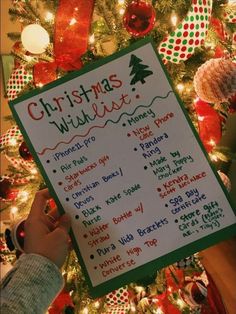 Christmas
Wishlist
• iPhone 11 pro
• AirPods
• Starbucks gift
cards
• Christian Books/
Devos
• Black Kate Spade
• Water Bottle w/
Straw
• Pura Vida Bracelets
• White High Top
Converse
• Money
• New Phone
Case
• Pandora
Ring
• Made by
Mary Necklace
• Kendra
Scott Necklace
• Spa Day
certificate
• Store Gift
Cards (Pink,
AE, Tilly's)